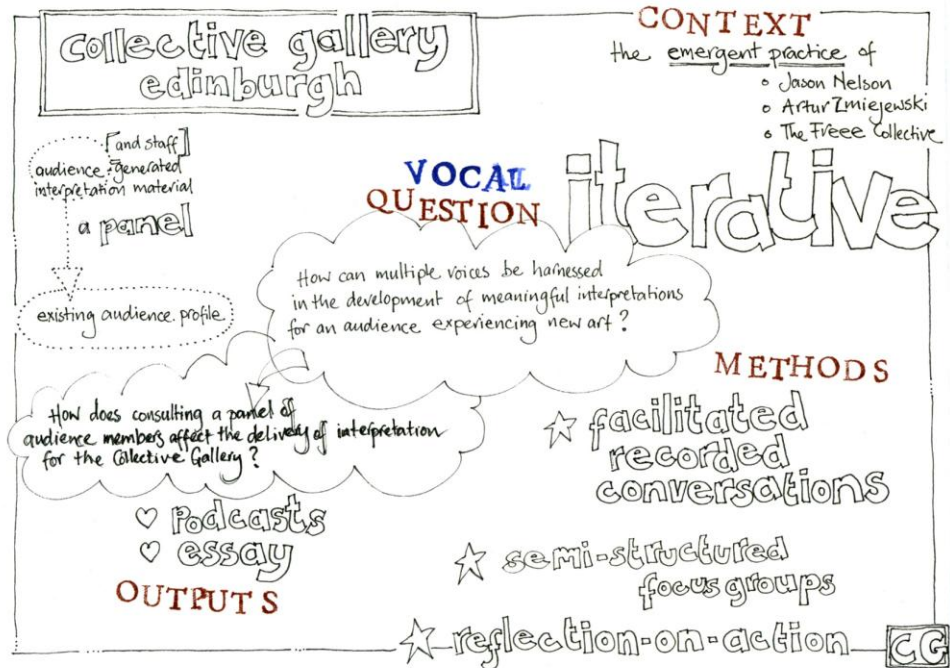 collective gallery
edinburgh
CONTEXT
the emergent practice of
Jason Nelson
Artur Zmiejewski
The Freee Collective
[and staff]
audience-generated
interpretation material
a panel
existing audience profile
VOCAL
QUESTION
iterative
How can multiple voices be harnessed
in the development of meaningful interpretations
for an audience experiencing new art?
How does consulting a panel of
audience members affect the delivery of interpretation
for the Collective Gallery?
METHODS
☆ facilitated
recorded
conversations
☆ semi-structured
focus groups
☆ reflection-on-action
♡ Podcasts
♡ essay
OUTPUTS
CG